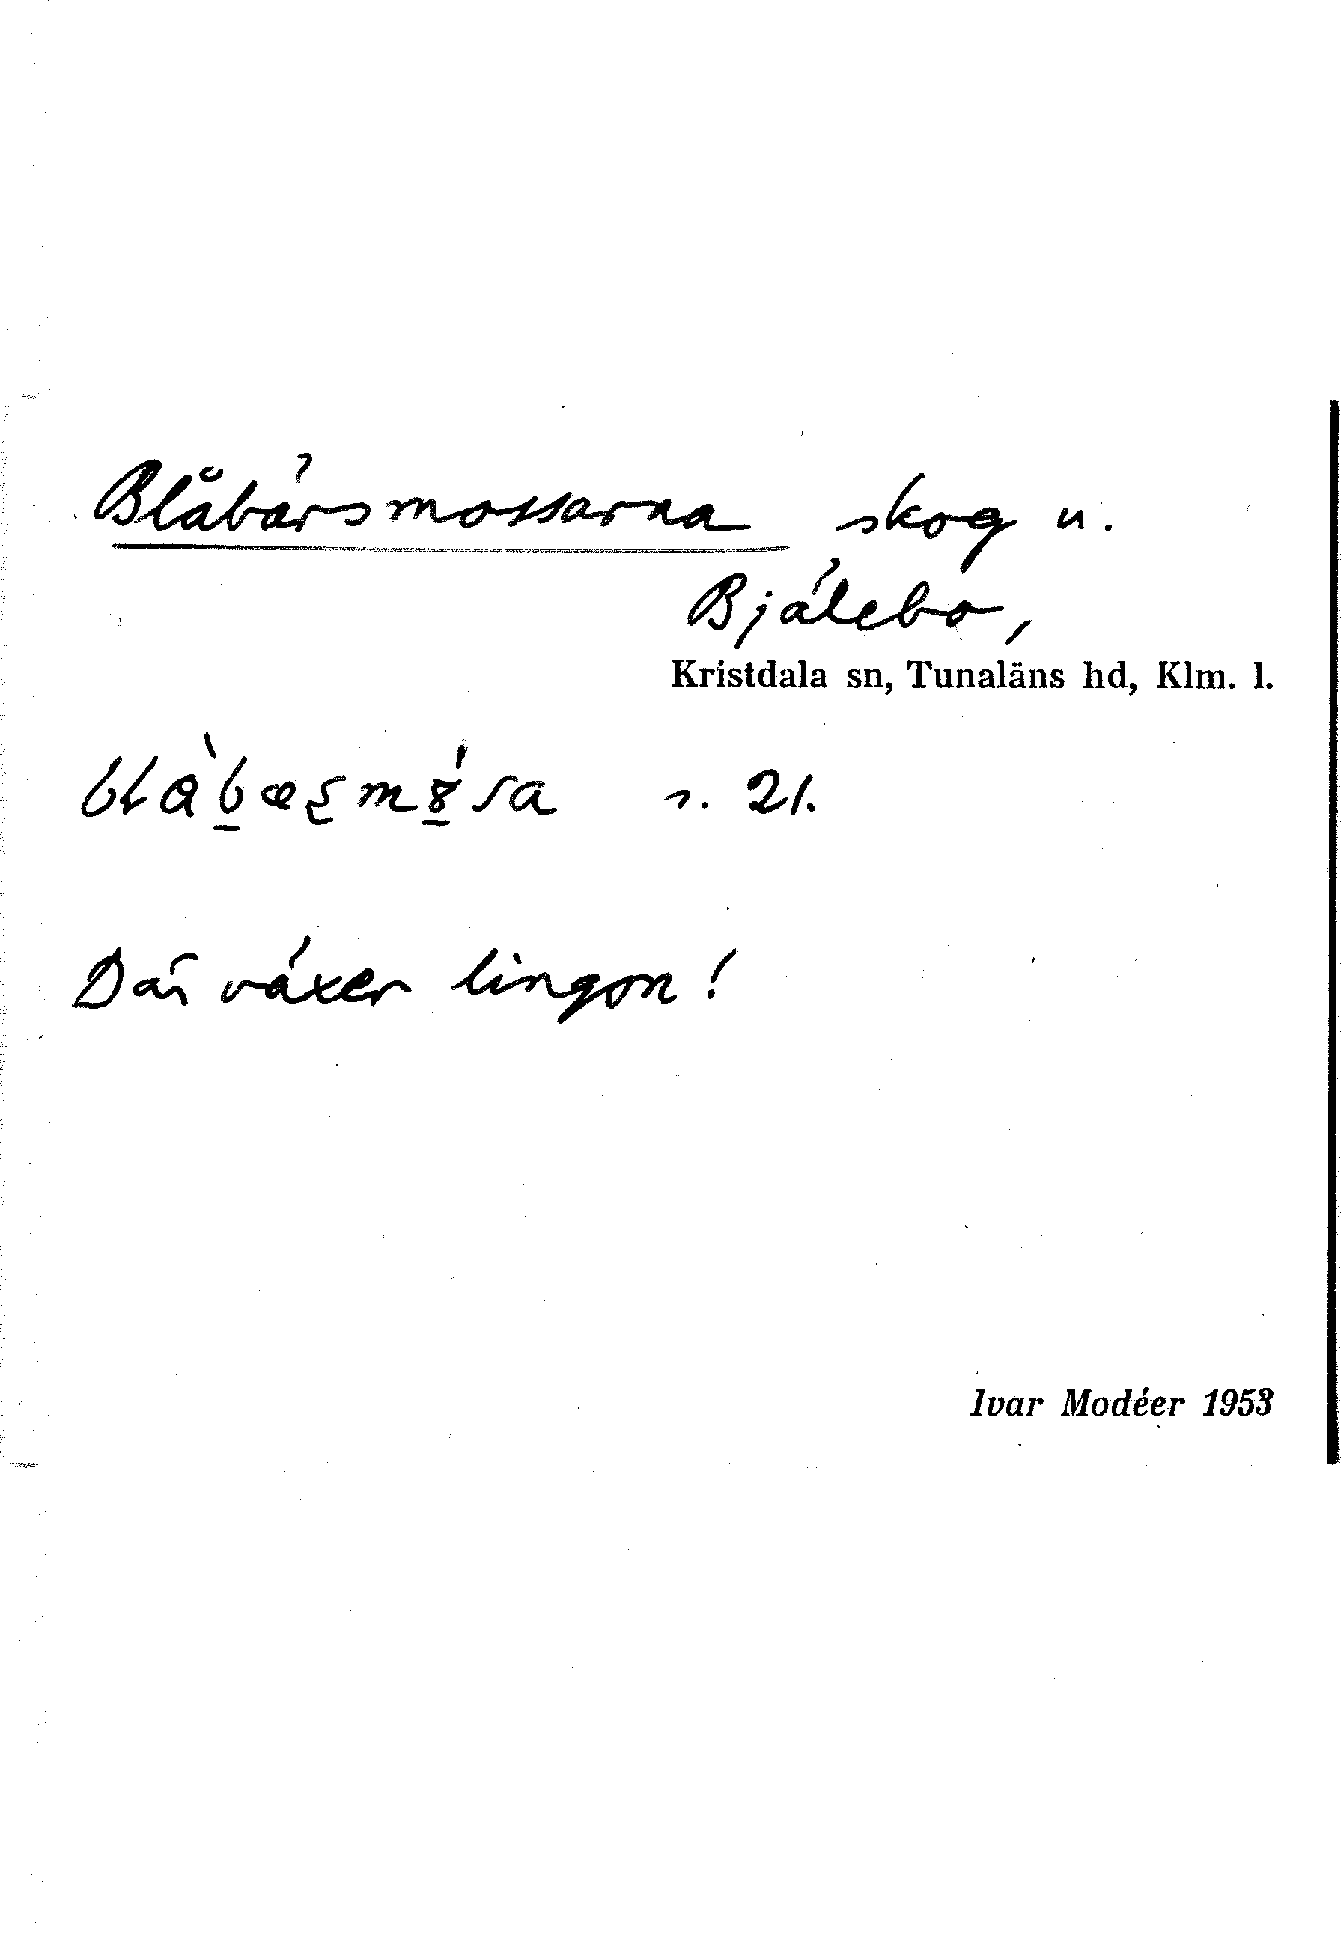 Blåbärsmossarna skog u.
Bjälebo,
Kristdala sn, Tunaläns hd, Klm. l.
s. 21.
Där växer lingon!
Ivar Modéer 1953